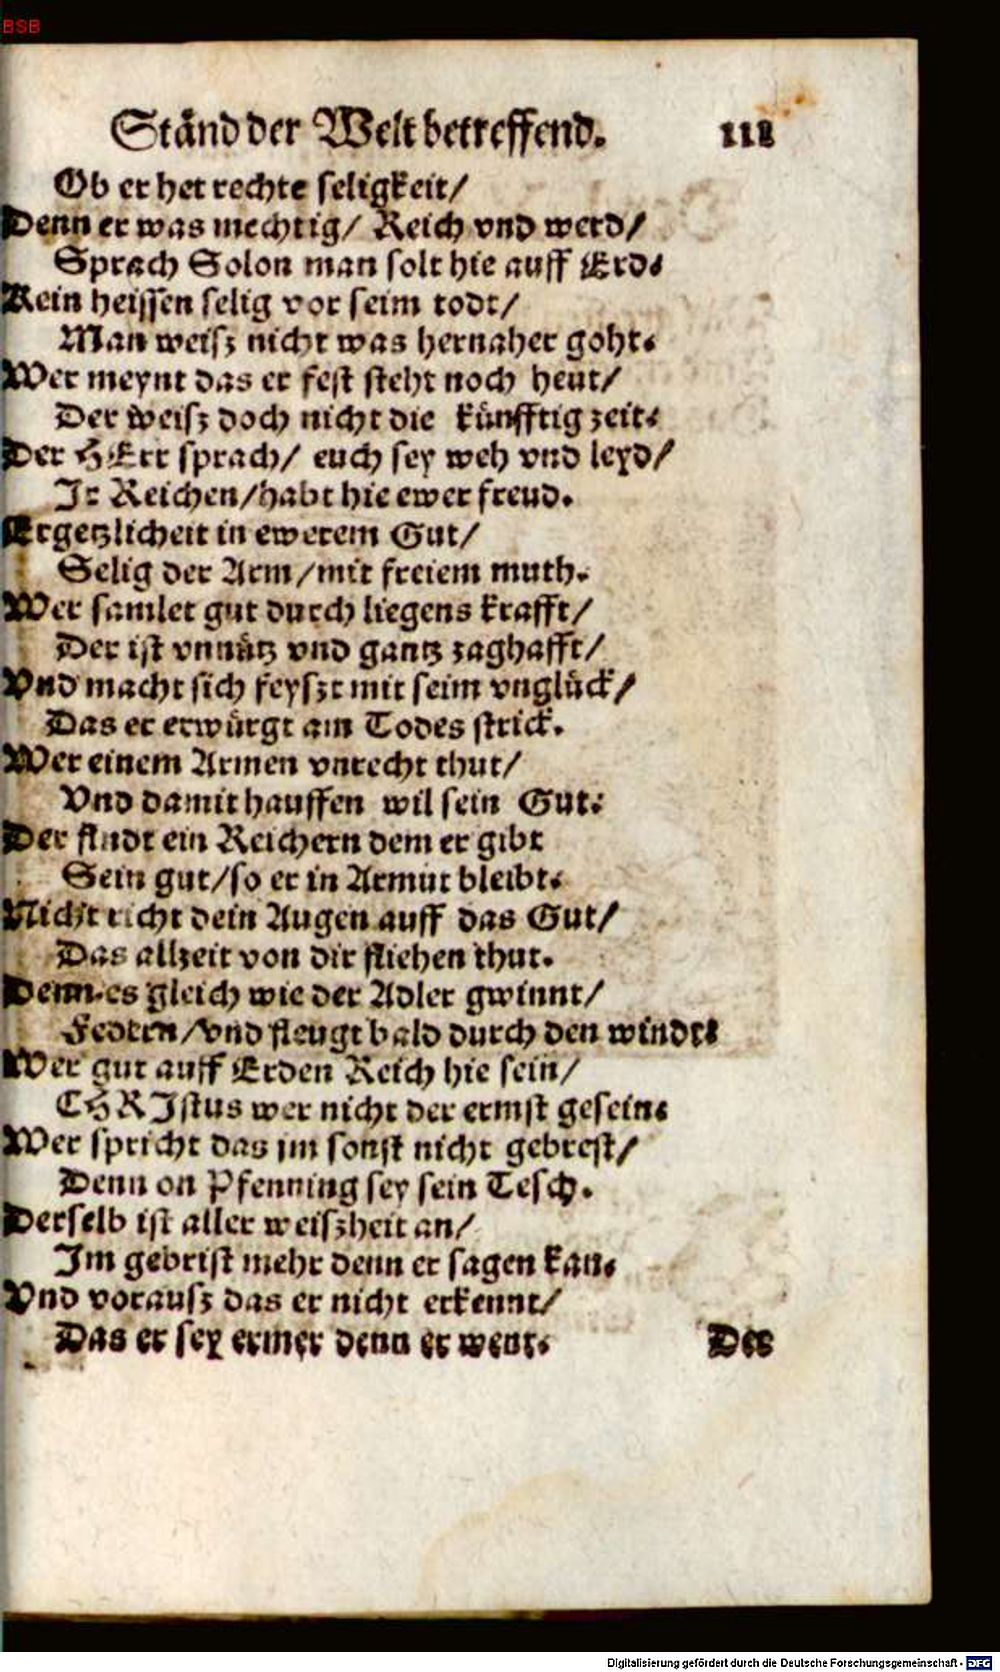 BSB
Ständ der Welt betreffend. 111
Ob er het rechte seligkeit/
Denn er was mechtig/ Reich vnd werd/
Sprach Solon man solt hie auff Erd.
Kein heissen selig vor seim todt/
Man weisz nicht was hernaher goht.
Wer meynt das er fest steht noch heut/
Der weisz doch nicht die künfftig zeit.
Der HErr sprach/ euch sey weh vnd leyd/
Jr Reichen/habt hie ewer freud.
Ergetzlicheit in ewerem Gut/
Selig der Arm/mit freiem muth.
Wer samlet gut durch liegens krafft/
Der ist vnnütz vnd gantz zaghafft/
Vnd macht sich feyszt mit seim vnglück/
Das er erwürgt am Todes strick.
Wer einem Armen vnrecht thut/
Vnd damit hauffen wil sein Gut:
Der findt ein Reichern dem er gibt
Sein gut/so er in Armut bleibt.
Nicht richt dein Augen auff das Gut/
Das allzeit von dir fliehen thut.
Denn es gleich wie der Adler gwinnt/
Federn/vnd fleugt bald durch den windt.
Wer gut auff Erden Reich hie sein/
CHRIstus wer nicht der ermst gesein.
Wer spricht das jm sonst nicht gebrest/
Denn on Pfenning sey sein Tesch.
Derselb ist aller weiszheit an/
Jm gebrist mehr denn er sagen kan.
Vnd vorausz das er nicht erkennt/
Das er sey ermer denn er went.
Der
Digitalisierung gefördert durch die Deutsche Forschungsgemeinschaft - DFG